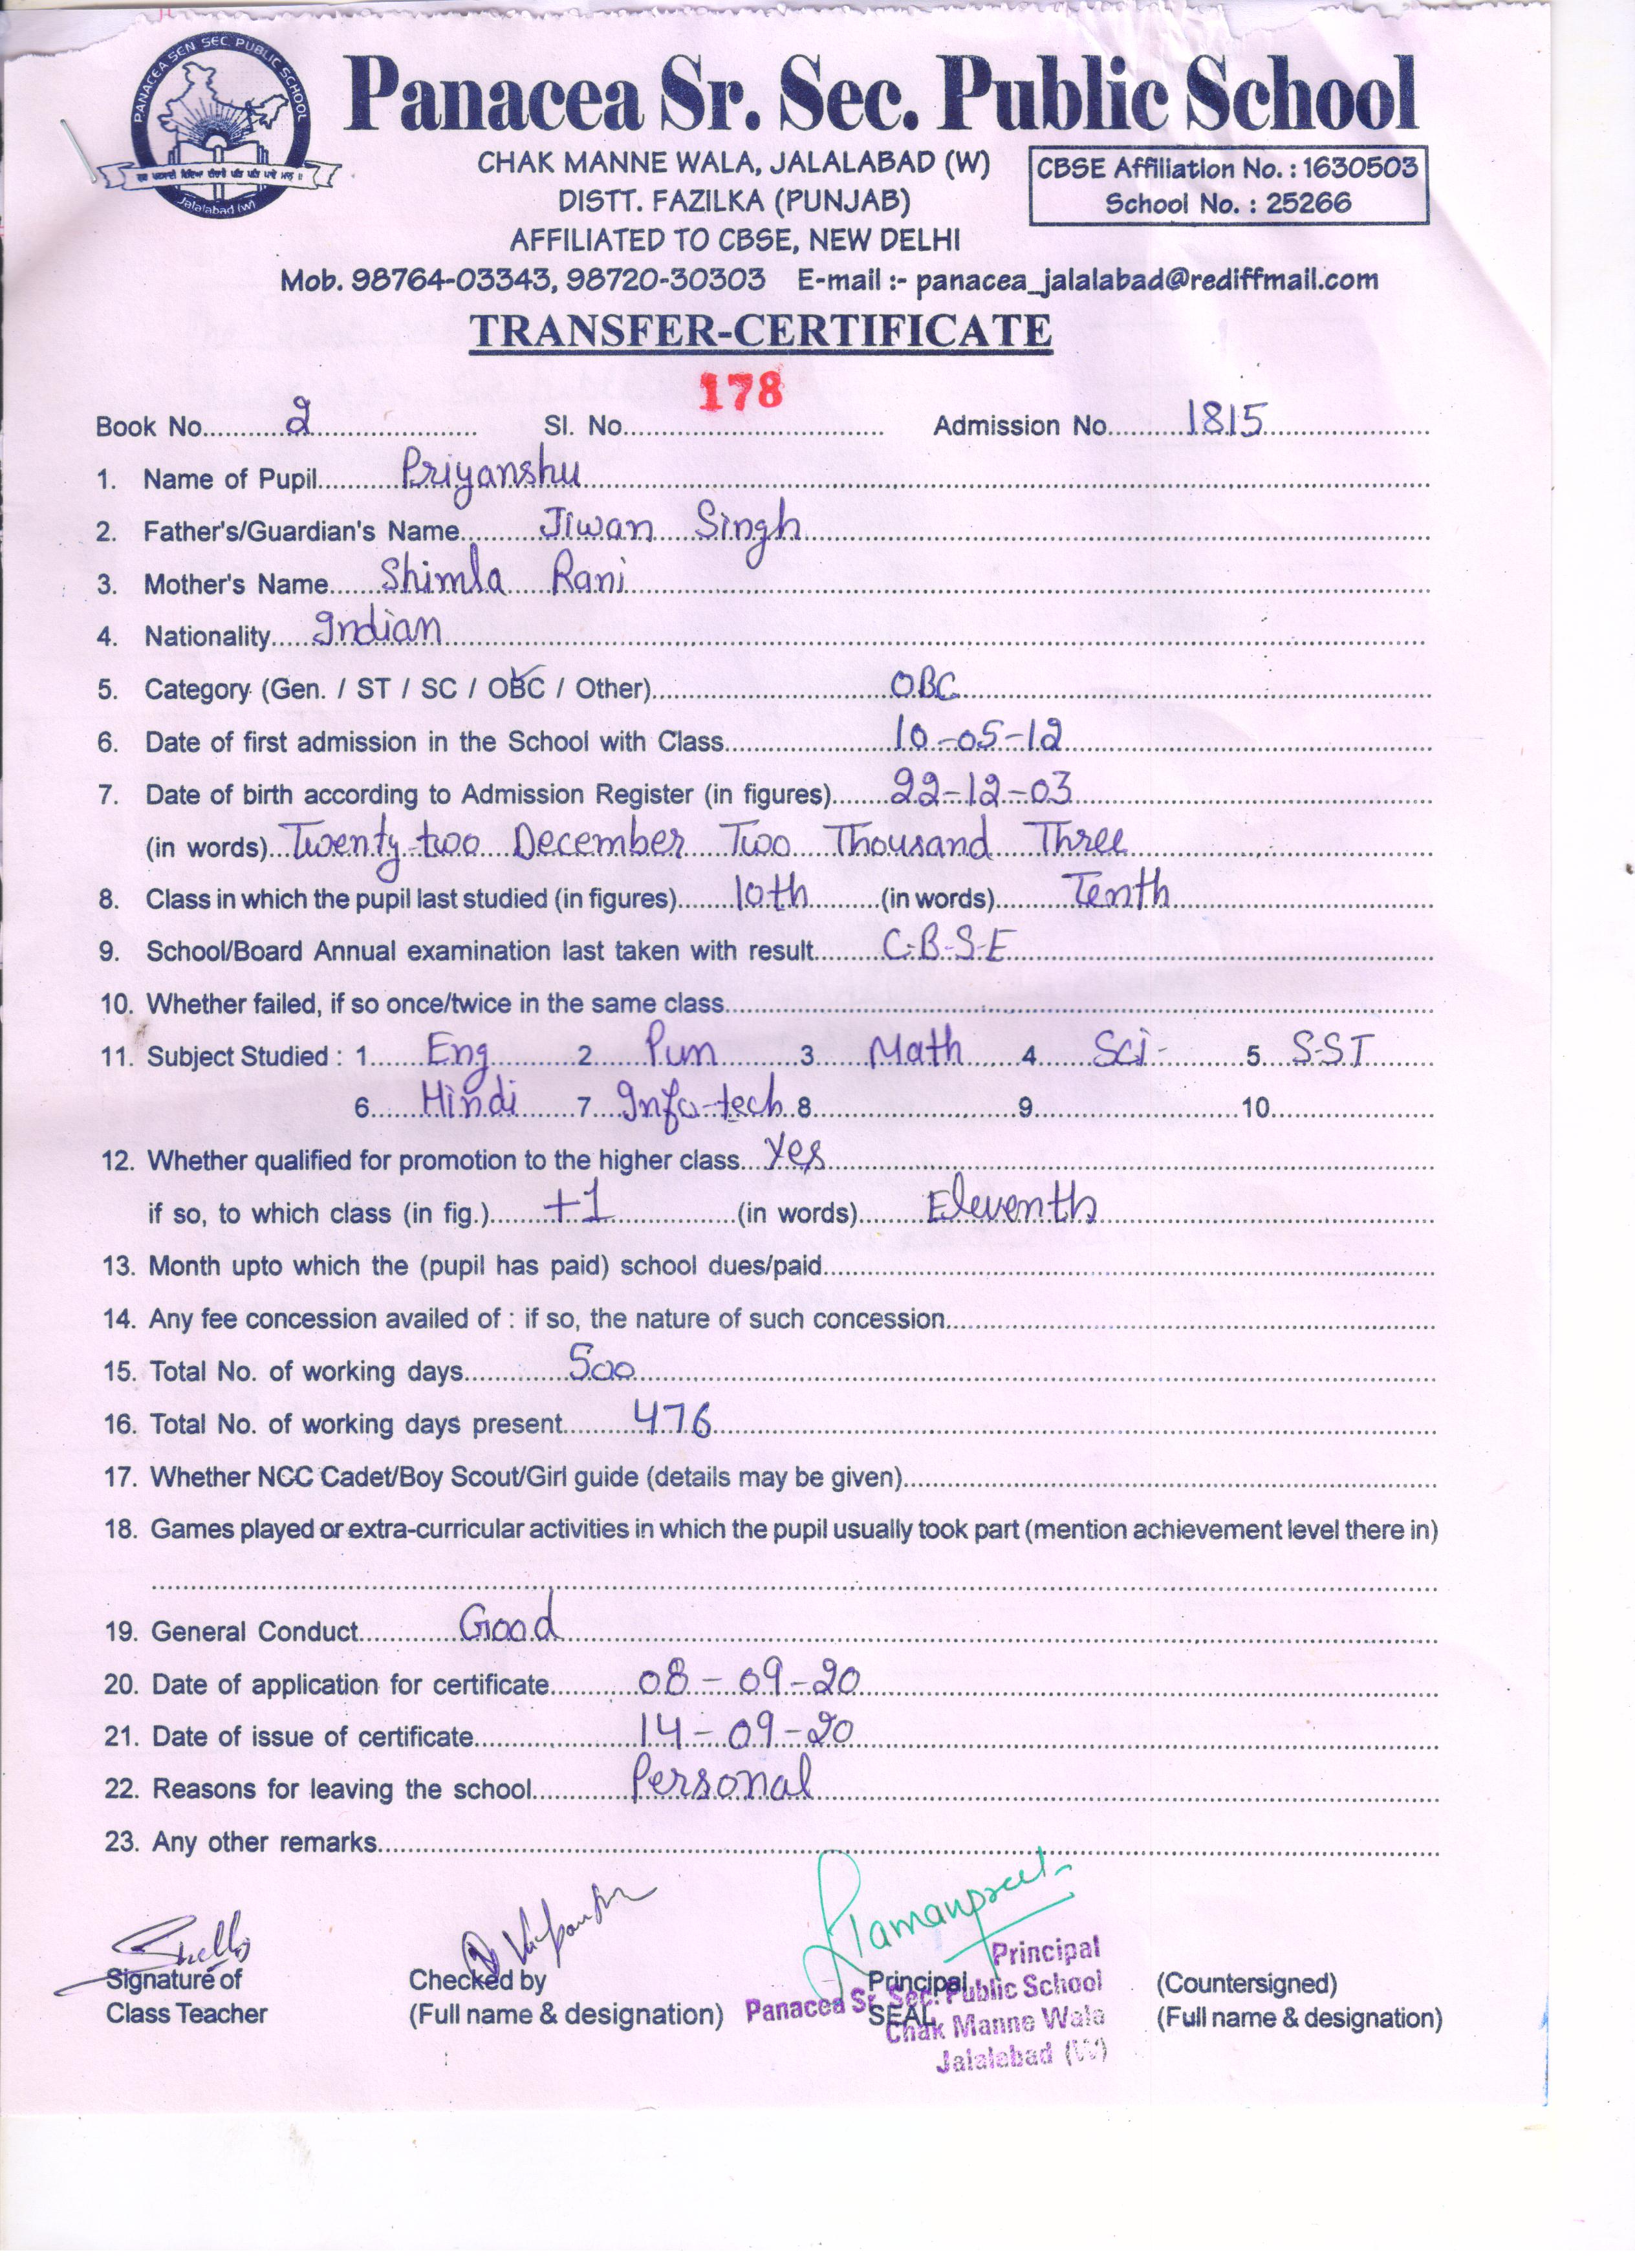 PANACEA SEN SEC PUBLIC SCHOOL
Jalalabad (W)
Panacea Sr. Sec. Public School
CHAK MANNE WALA, JALALABAD (W)
DISTT. FAZILKA (PUNJAB)
AFFILIATED TO CBSE, NEW DELHI
CBSE Affiliation No. : 1630503
School No. : 25266
Mob. 98764-03343, 98720-30303 E-mail :- panacea_jalalabad@rediffmail.com
TRANSFER-CERTIFICATE
Book No. 2 Sl. No. 178 Admission No. 1815
1. Name of Pupil Priyanshu
2. Father's/Guardian's Name Jiwan Singh
3. Mother's Name Shimla Rani
4. Nationality Indian
5. Category (Gen. / ST / SC / OBC / Other) OBC
6. Date of first admission in the School with Class 10-05-12
7. Date of birth according to Admission Register (in figures) 22-12-03
(in words) Twenty-two December Two Thousand Three
8. Class in which the pupil last studied (in figures) 10th (in words) Tenth
9. School/Board Annual examination last taken with result C-B-S-E
10. Whether failed, if so once/twice in the same class
11. Subject Studied : 1. Eng 2 Pun 3 Math 4 Sci- 5 S-ST
6 Hindi 7 Info-tech 8 9 10
12. Whether qualified for promotion to the higher class Yes
if so, to which class (in fig.) +1 (in words) Eleventh
13. Month upto which the (pupil has paid) school dues/paid
14. Any fee concession availed of : if so, the nature of such concession
15. Total No. of working days 500
16. Total No. of working days present 476
17. Whether NCC Cadet/Boy Scout/Girl guide (details may be given)
18. Games played or extra-curricular activities in which the pupil usually took part (mention achievement level there in)
19. General Conduct Good
20. Date of application for certificate 08-09-20
21. Date of issue of certificate 14-09-20
22. Reasons for leaving the school Personal
23. Any other remarks
Ramanpreet
Signature of Class Teacher
Checked by (Full name & designation)
Principal SEAL
(Countersigned) (Full name & designation)
Principal
Panacea Sr. Sec. Public School
Chak Manne Wala
Jalalabad (W)